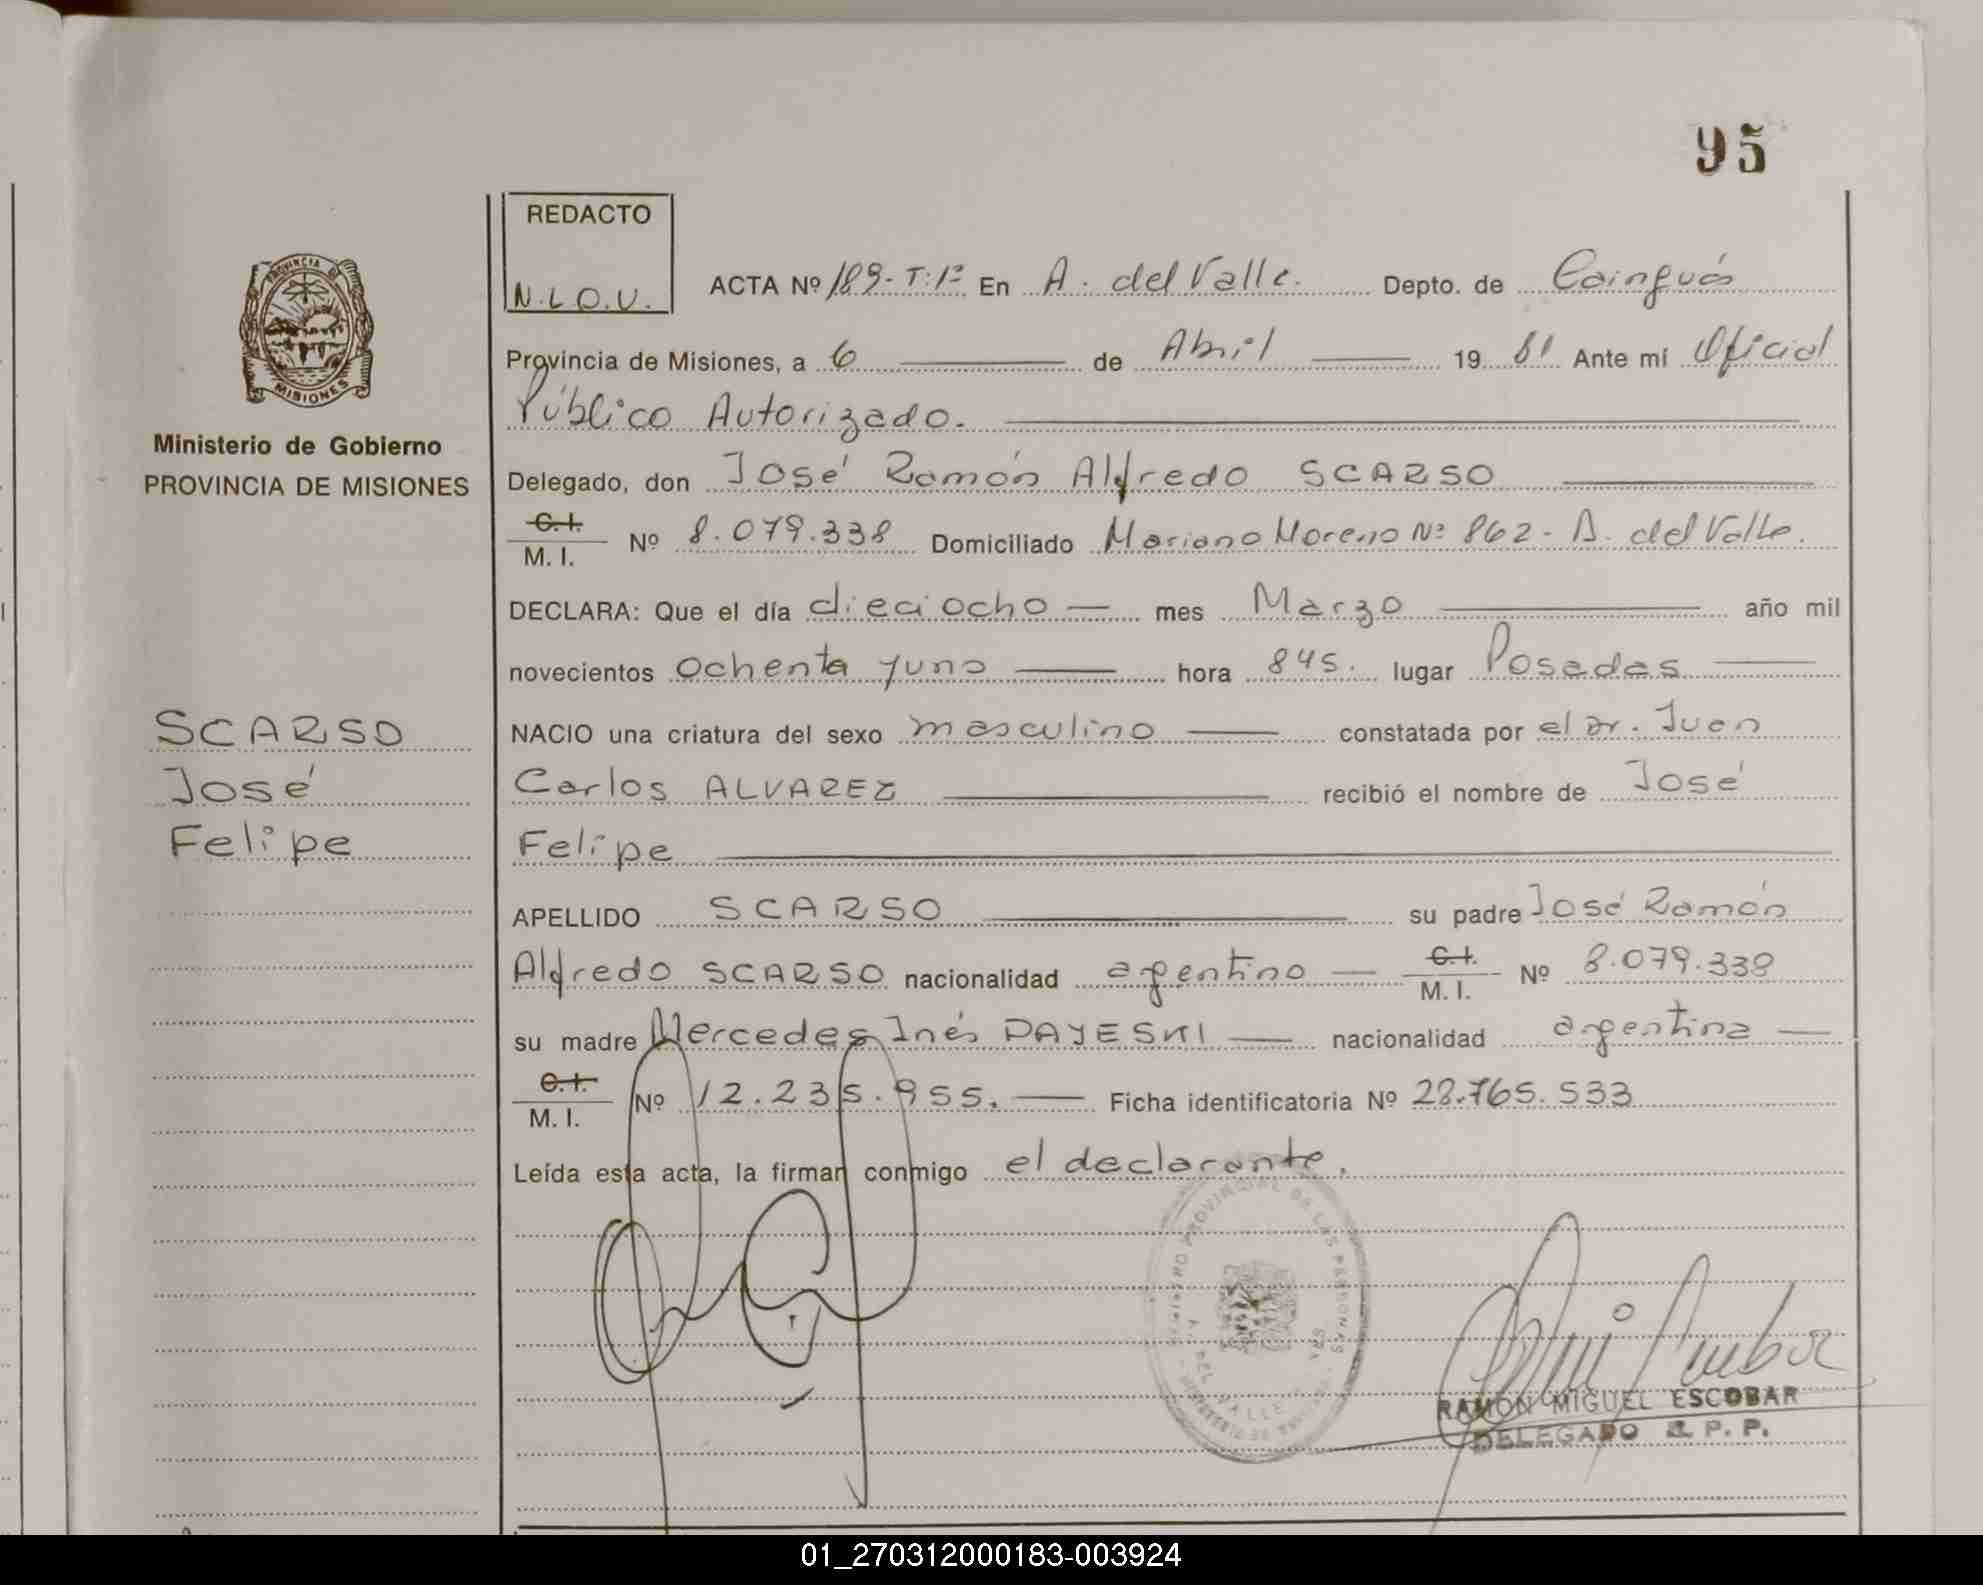 95
REDACTO
N.L.O.U.
PROVINCIA D
MISIONES
Ministerio de Gobierno
PROVINCIA DE MISIONES
ACTA Nº 189-T:1º En A. del Valle. Depto. de Cainguás
Provincia de Misiones, a 6 de Abril 19 81 Ante mí Oficial
Público Autorizado.
Delegado, don José Ramón Alfredo SCARSO
C. I.
M. I. Nº 8.079.338 Domiciliado Mariano Moreno Nº 862 - A. del Valle.
DECLARA: Que el día dieciocho mes Marzo año mil
novecientos ochenta yuno hora 845. lugar Posadas
NACIO una criatura del sexo masculino constatada por el Dr. Juan
Carlos ALVAREZ recibió el nombre de José
Felipe
APELLIDO SCARSO su padre José Ramón
Alfredo SCARSO nacionalidad argentino C. I.
M. I. Nº 8.079.338
su madre Mercedes Inés DAJESKI nacionalidad argentina
C. I.
M. I. Nº 12.235.955. Ficha identificatoria Nº 28.765.533
Leída esta acta, la firman conmigo el declarante.
SCARSO
José
Felipe
REGISTRO PROVINCIAL DE LAS PERSONAS
DEL VALLE
RAMON MIGUEL ESCOBAR
DELEGADO R. P. P.
01_270312000183-003924